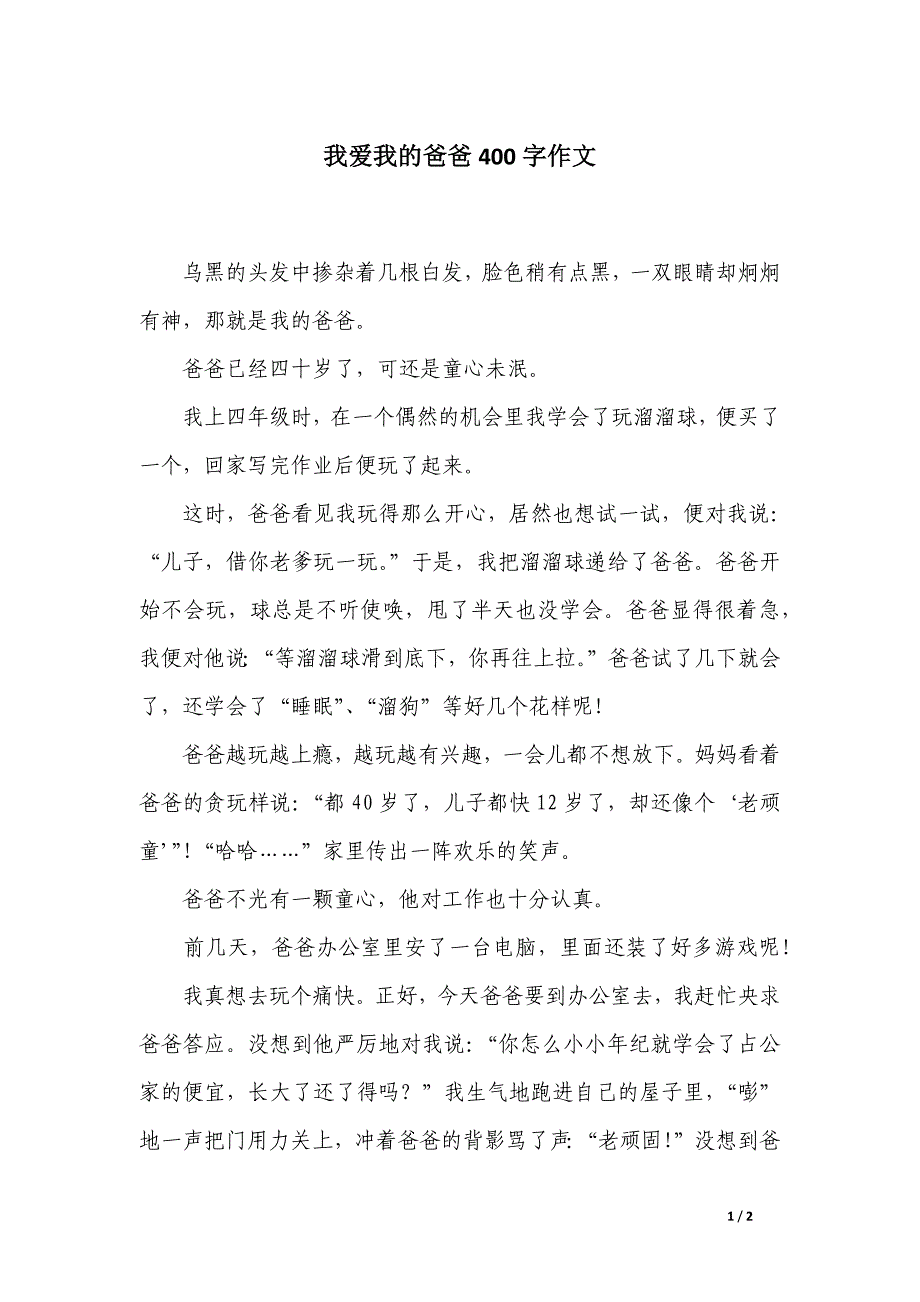 我爱我的爸爸 400 字作文
乌黑的头发中掺杂着几根白发，脸色稍有点黑，一双眼睛却炯炯
有神，那就是我的爸爸。
爸爸已经四十岁了，可还是童心未泯。
我上四年级时，在一个偶然的机会里我学会了玩溜溜球，便买了
一个，回家写完作业后便玩了起来。
这时，爸爸看见我玩得那么开心，居然也想试一试，便对我说：
“儿子，借你老爹玩一玩。”于是，我把溜溜球递给了爸爸。爸爸开
始不会玩，球总是不听使唤，甩了半天也没学会。爸爸显得很着急，
我便对他说：“等溜溜球滑到底下，你再往上拉。”爸爸试了几下就会
了，还学会了“睡眠”、“溜狗”等好几个花样呢！
爸爸越玩越上瘾，越玩越有兴趣，一会儿都不想放下。妈妈看着
爸爸的贪玩样说：“都 40 岁了，儿子都快 12 岁了，却还像个‘老顽
童’”！“哈哈……”家里传出一阵欢乐的笑声。
爸爸不光有一颗童心，他对工作也十分认真。
前几天，爸爸办公室里安了一台电脑，里面还装了好多游戏呢！
我真想去玩个痛快。正好，今天爸爸要到办公室去，我赶忙央求
爸爸答应。没想到他严厉地对我说：“你怎么小小年纪就学会了占公
家的便宜，长大了还了得吗？”我生气地跑进自己的屋子里，“嘭”
地一声把门用力关上，冲着爸爸的背影骂了声：“老顽固！”没想到爸
1 / 2